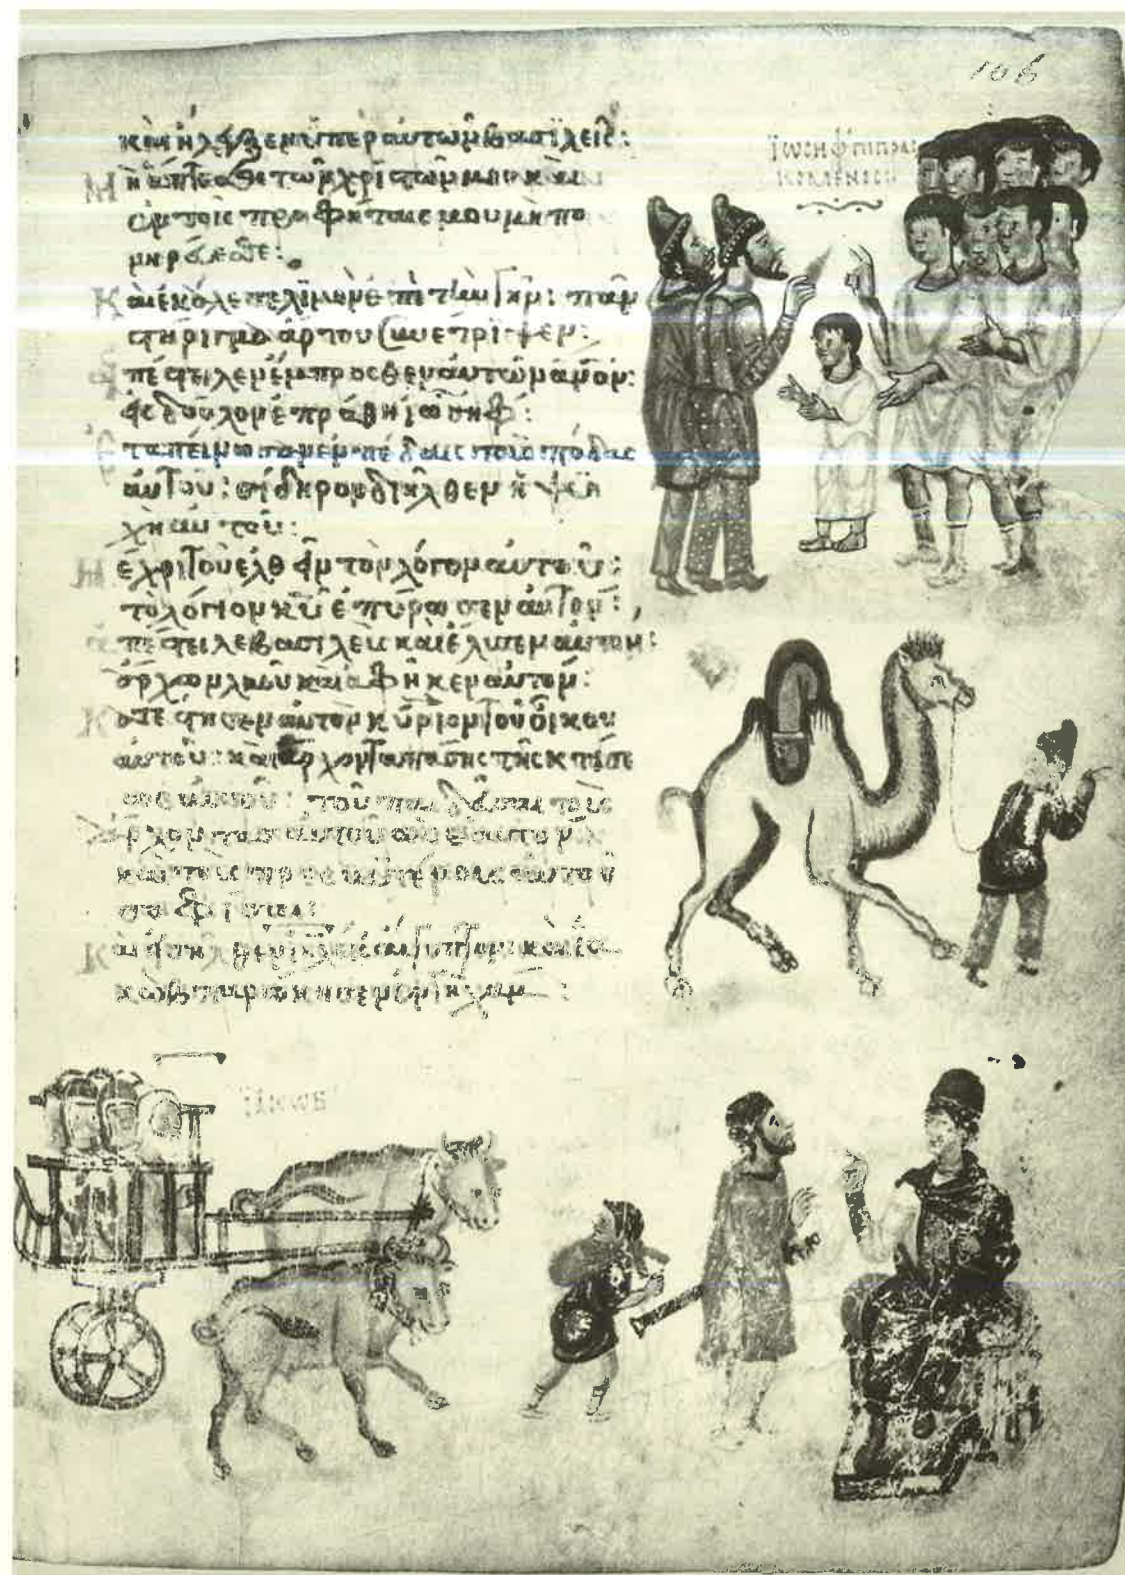 106
καὶ ἤλεγξεν ὑπὲρ αὐτῶν βασιλεῖς:
Μὴ ἅπτεσθε τῶν χριστῶν μου καὶ
ἐν τοῖς προφήταις μου μὴ πο
νηρεύεσθε:
Καὶ ἐκάλεσε λιμὸν ἐπὶ τὴν γῆν: πᾶν
στήριγμα ἄρτου συνέτριψεν:
ἀπέστειλεν ἔμπροσθεν αὐτῶν ἄνον:
εἰς δοῦλον ἐπράθη ἰωσήφ:
ἐταπείνωσαν ἐν πέδαις τοὺς πόδας
αὐτοῦ: σίδηρον διῆλθεν ἡ ψυ
χὴ αὐτοῦ:
Μέχρι τοῦ ἐλθεῖν τὸν λόγον αὐτοῦ:
τὸ λόγιον κυ ἐπύρωσεν αὐτόν:
ἀπέστειλε βασιλεὺς καὶ ἔλυσεν αὐτόν:
ἄρχων λαοῦ καὶ ἀφῆκεν αὐτόν:
Κατέστησεν αὐτὸν κύριον τοῦ οἴκου
αὐτοῦ: καὶ ἄρχοντα πάσης τῆς κτήσε
ως αὐτοῦ: τοῦ παιδεῦσαι τοὺς
ἄρχοντας αὐτοῦ ὡς ἑαυτὸν
καὶ τοὺς πρεσβυτέρους αὐτοῦ
σοφίσαι:
Καὶ εἰσῆλθεν ιηλ εἰς αἴγυπτον καὶ ἰα
κὼβ παρῴκησεν ἐν γῇ χάμ:
ΙΩCΗΦ ΠΙΠΡΑC
ΚΟΜΕΝΟC
ΙΑΚΩΒ